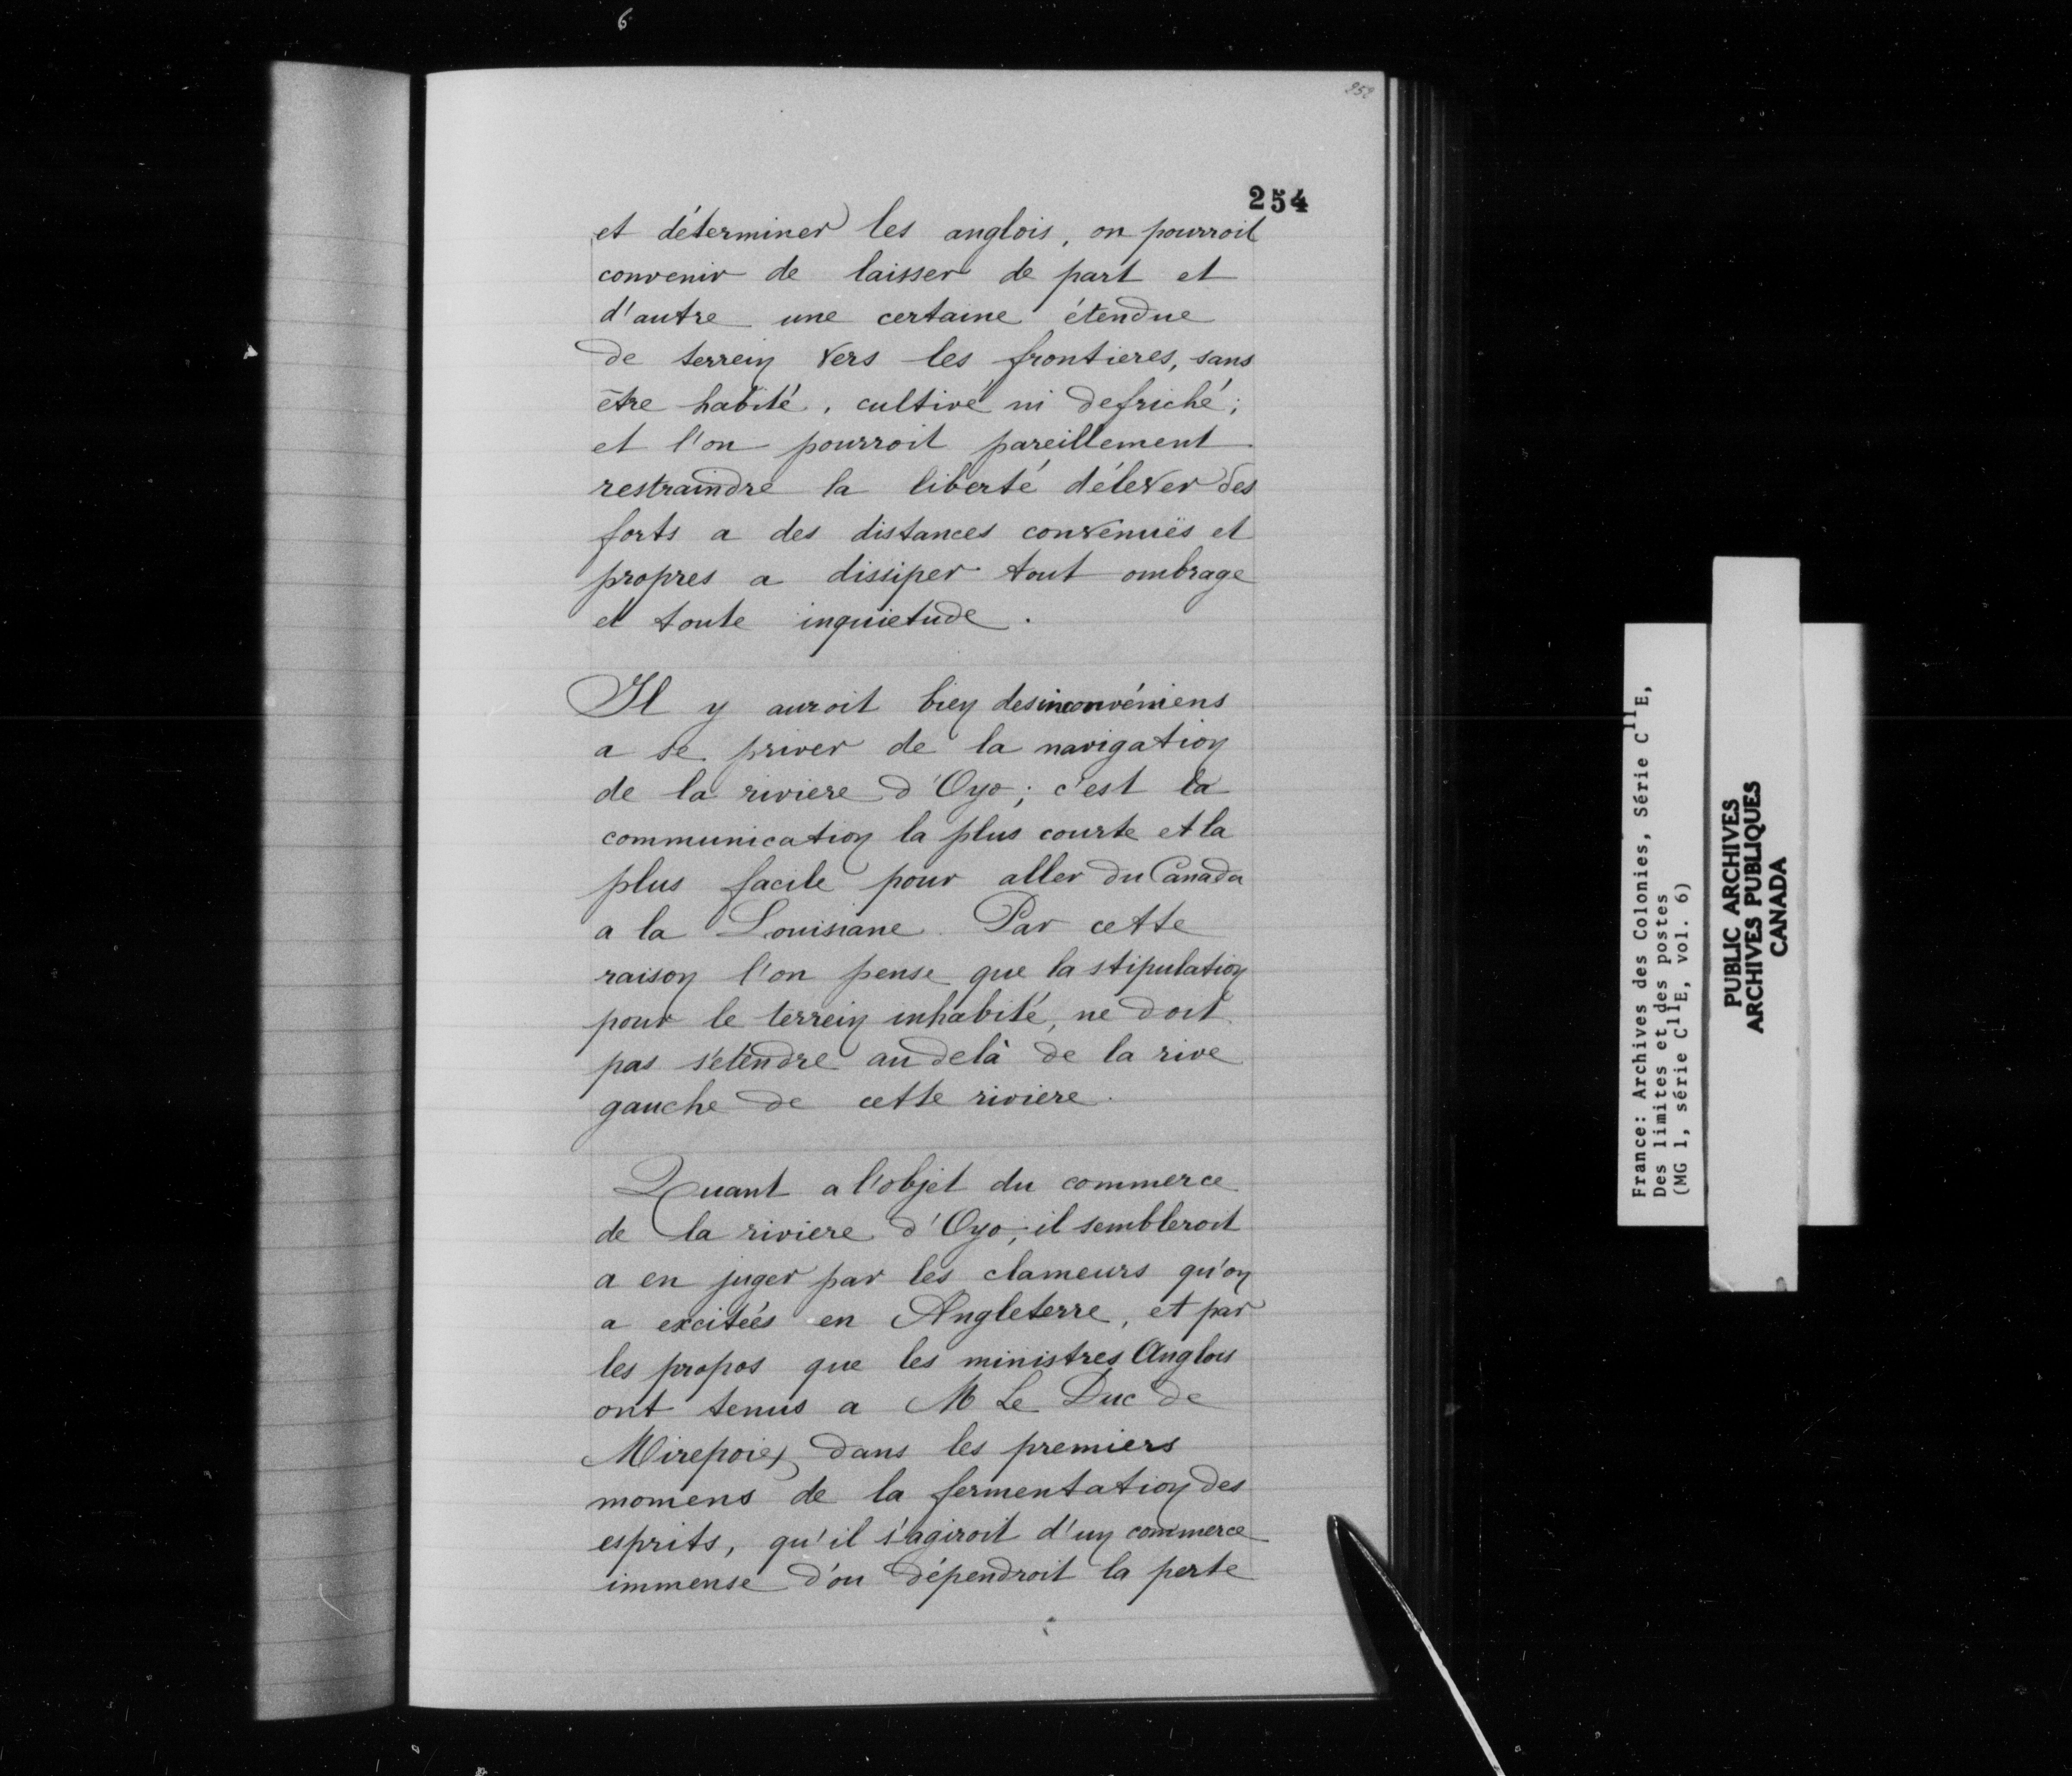 6
252
254
et déterminer les anglois, on pourroit
convenir de laisser de part et
d'autre une certaine étendue
de terrein vers les frontieres, sans
être habité, cultivé ni defriché;
et l'on pourroit pareillement
restraindre la liberté d'élever des
forts a des distances convenuës et
propres a dissiper tout ombrage
et toute inquietude.
Il y auroit bien des inconvéniens
a se priver de la navigation
de la riviere d'Oyo; c'est la
communication la plus courte et la
plus facile pour aller du Canada
a la Louisiane. Par cette
raison l'on pense que la stipulation
pour le terrein inhabité, ne doit
pas s'etendre au delà de la rive
gauche de cette riviere.
Quant a l'objet du commerce
de la riviere d'Oyo, il sembleroit
a en juger par les clameurs qu'on
a excitées en Angleterre, et par
les propos que les ministres Anglois
ont tenus a M Le Duc de
Mirepoix dans les premiers
momens de la fermentation des
esprits, qu'il s'agiroit d'un commerce
immense d'ou dépendroit la perte
France: Archives des Colonies, Série C11E,
Des limites et des postes
(MG 1, série C11E, vol. 6)
PUBLIC ARCHIVES
ARCHIVES PUBLIQUES
CANADA